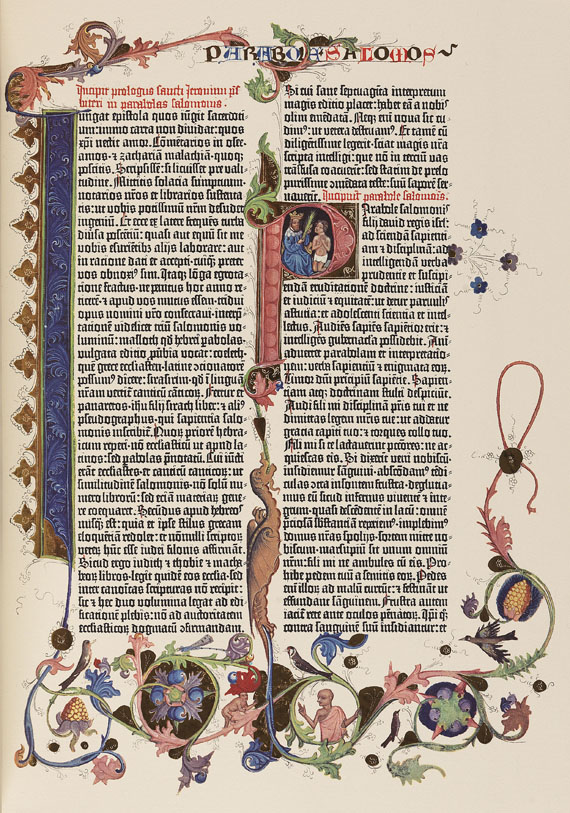 PARABOLE SALOMOS
Incipit prologus sancti Jeronimi p̄s-
biteri in parabolas salomonis.
Iungat epistola quos iūgit sacerdoti-
um: immo carta non dividat: quos
xp̄i nectit amor. Cōmētarios in osee
amos ⁊ zachariā malachiā quoq;
poscitis. Scripsissē: si licuisset p̄re vali-
tudine. Mittitis solacia sumptuum
notarios nr̄os et librarios sustenta-
tis: ut vobis potissimū nr̄m desudet
ingeniū. Et ecce ex latere freqūēs turba
diūsa poscētiū: quasi aut equū sit me
vobis esuriētib; alijs laborare: aut
in ratione dati et accepti cuiq̄; preter
vos obnoxi⁹ sim. Itaq; lōga egrota-
tione fractus: ne penitus hoc anno re-
ticerē ⁊ apud vos mutus essem: tridui
opus nomini vr̄o consecravi: interp̄-
tationē videlicet triū salomonis vo-
luminū: masloth q̄d hebrei pabolas:
vulgata editio p̄verbia vocat: coeleth:
quē grece ecclesiastē: latine ꝯcionatorē
possum⁹ dicere: sirasirim: q̄d ī lingua
nr̄am vertit᷑ canticū canticor̄. Fertur et
panaretos: ihu filij sirach liber: ⁊ ali⁹
pseudographus: qui sapientia salo-
monis inscribit᷑. Quor̄ priorē hebra-
icum reperi: nō ecclesiasticū ut apud la-
tinos: sed pabolas p̄notatū. Cui iūcti
erāt ecclesiastes: et canticū canticor̄: ut
similitudinē salomonis: nō solū nu-
mero librorū: sed eciā materiar̄ gene-
re coequaret. Secūdus apud hebreos
nusq̄ est: quia et ipse stilus grecam
eloquētiā redolet: et nōnulli scriptor̄
veter̄ hūc esse iudei filonis affirmāt.
Sicud ergo iudith ⁊ thobie ⁊ macha-
beor̄ libros: legit quidē eos ecclesia: sed
inter canoicas scripturas nō recipit:
sic ⁊ hec duo volumina legat ad edi-
ficationē plebis: nō ad auctoritatem
ecclesiasticor̄ dogmatū ꝯfirmandam.
Si cui sane septuagīta interpretum
magis editio placet: habet eā a nobis
olim emēdatā. Neq; enī nova sic cu-
dim⁹: ut vetera destruam⁹. Et tamē cū
diligētissime legerit: sciat magis nr̄a
scripta intelligi: que nō in terciū vas
trāsfusa coacuerīt: sed statim de prelo
purissime ꝯmēdata teste: suū saporē ser-
vaverīt. Incipiūt parabole salomōis.
Parabole salomonis
filij david regis isrl̄:
ad sciendā sapienti-
am ⁊ disciplinā: ad
intelligendā verba
prudentie et suscipi-
endā eruditationē doctrine: iusticiā
et iudiciū ⁊ equitatē: ut detur parvulis
astutia: et adolescenti sciencia et intel-
lectus. Audiēs sapiēs sapiētior erit: ⁊
intelligēs gubernacla possidebit. Ani-
advertet parabolam et interpretatio-
nem: verba sapientiū ⁊ enigmata eor̄.
Timor dn̄i principiū sapiētie. Sapien-
ciam atq; doctrinam stulti despiciūt.
Audi fili mi disciplinā pr̄is tui et ne
dimittas legem mr̄is tue: ut addatur
gracia capiti tuo: ⁊ torques collo tuo.
Fili mi si te lactaverīt pctōres: ne ac-
quiescas eis. Si dixerīt veni nobiscū:
insidiemur sāguini: abscōdam⁹ tēdi-
culas ꝯtra insontem frustra: deglutia-
mus eū sicud infernus viventē ⁊ inte-
grum: quasi descēdentē in lacū: omnē
p̄ciosā substāciā reperiem⁹: implebim⁹
domus nr̄as spolijs: sortem mitte no-
biscum: marsupiū sit unum omniū
nr̄m: fili mi ne ambules cū eis. Pro-
hibe pedem tuū a semitis eor̄. Pedes
enī illor̄ ad malū currūt: ⁊ festināt ut
effundant sāguinem. Frustra autem
iacit᷑ rete ante oculos pēnator̄. Ipi q̄;
contra sanguinē suū insidiantur: et